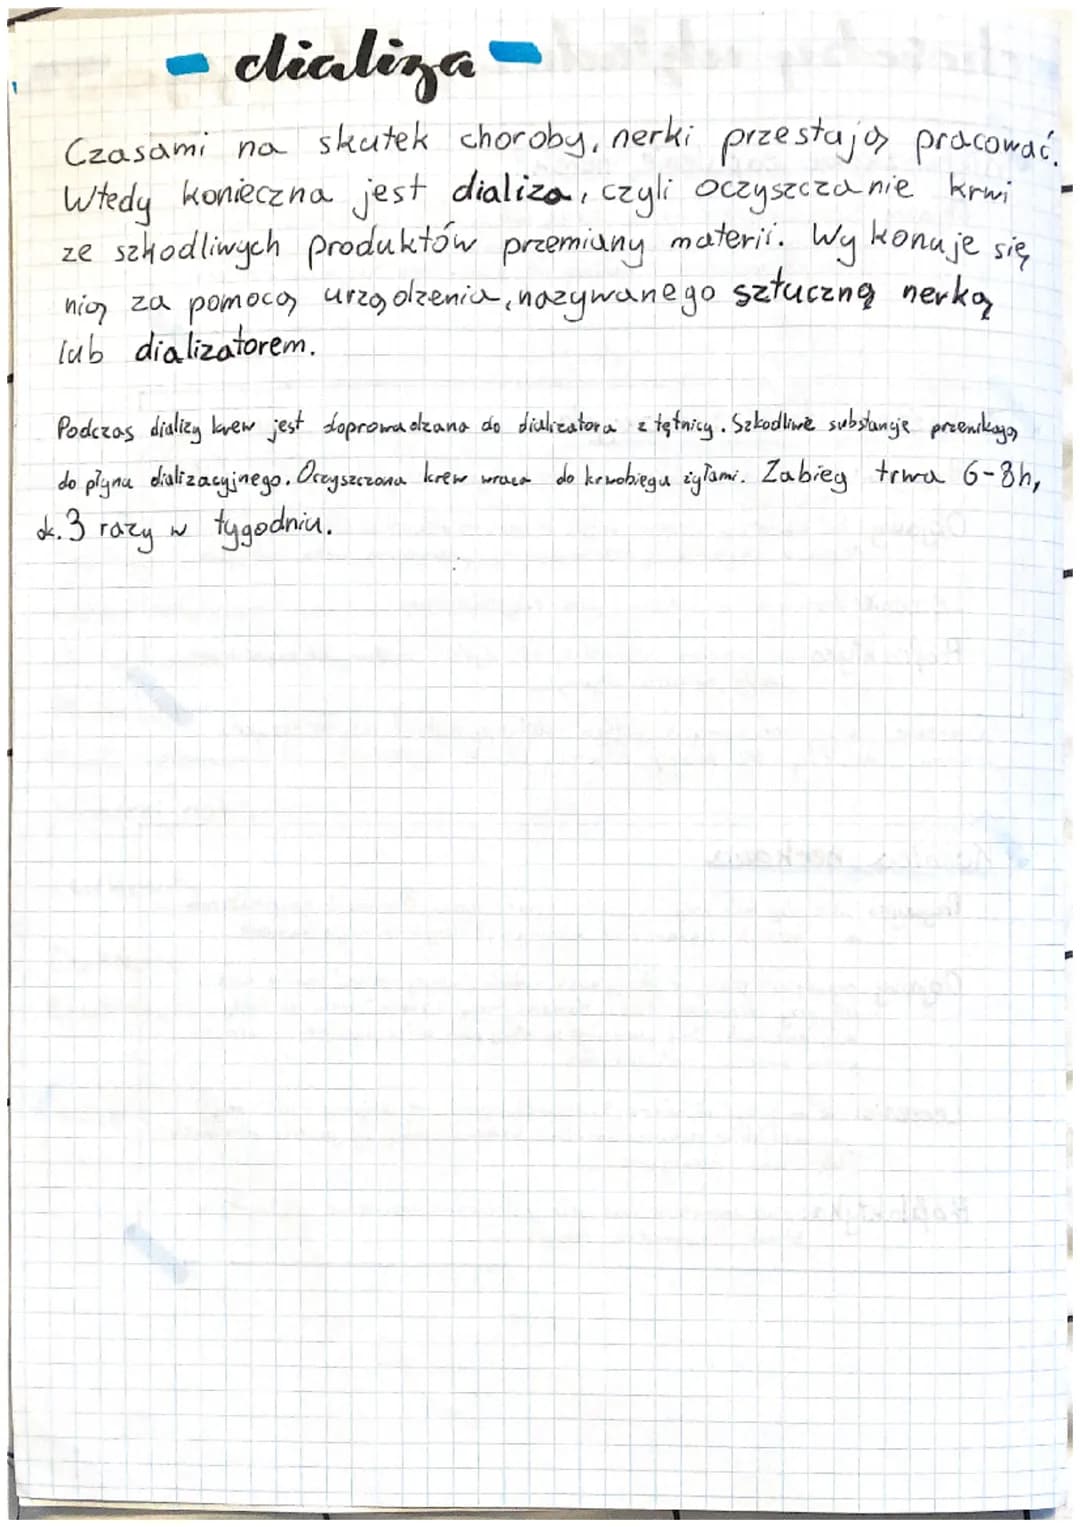 - dializa -
Czasami na skutek choroby, nerki przestają pracować.
Wtedy konieczna jest dializa, czyli oczyszczanie krwi
ze szkodliwych produktów przemiany materii. Wykonuje się
nią za pomocą urządzenia, nazywanego sztuczną nerką
lub dializatorem.
Podczas dializy krew jest doprowadzana do dializatora z tętnicy. Szkodliwe substancje przenikają
do płynu dializacyjnego. Oczyszczona krew wraca do krwobiegu żyłami. Zabieg trwa 6-8h,
ok. 3 razy w tygodniu.